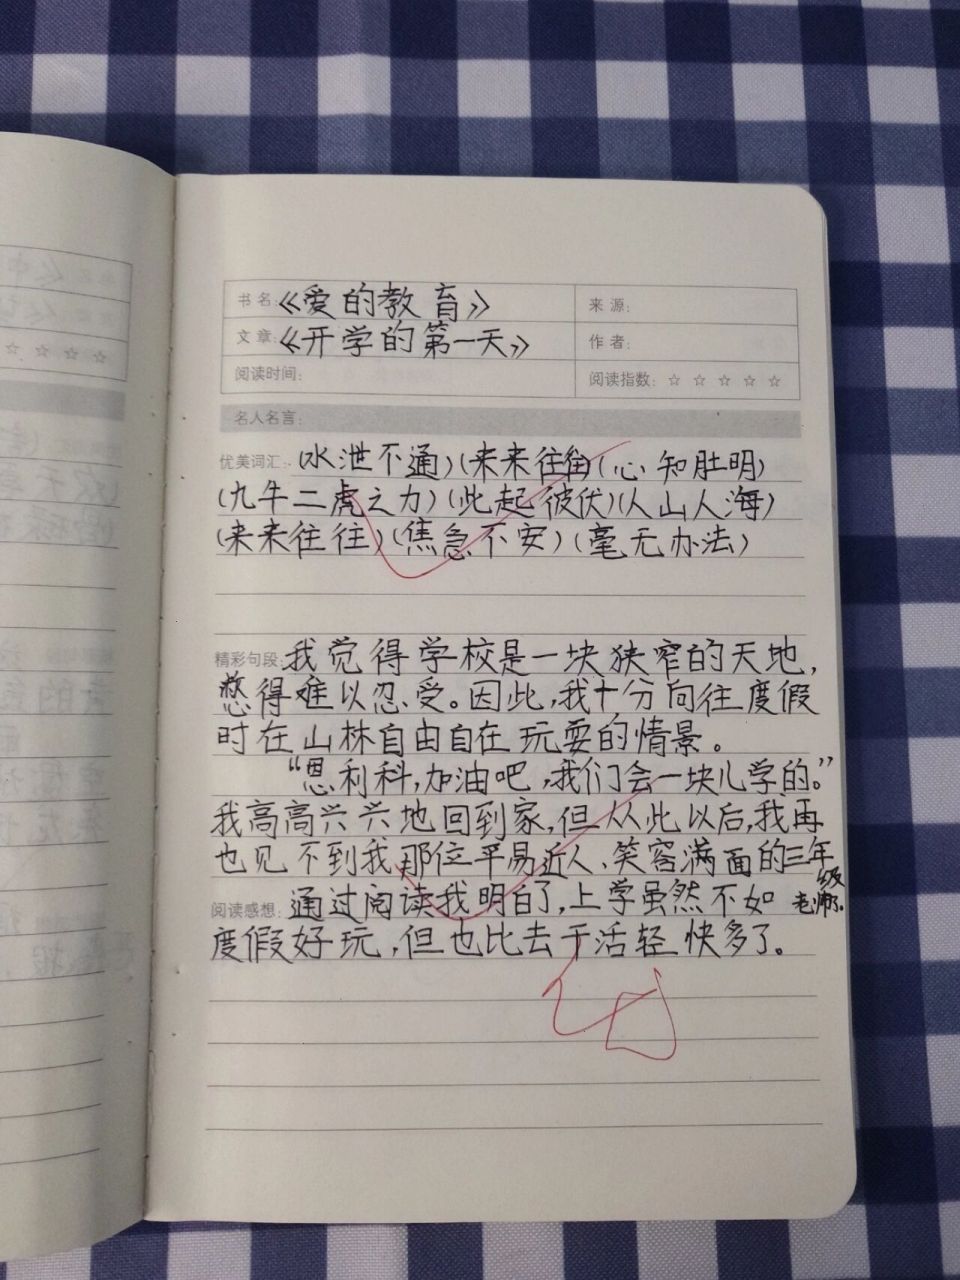 书名：《爱的教育》
来源：
文章：《开学的第一天》
作者：
阅读时间：
阅读指数：☆ ☆ ☆ ☆ ☆
名人名言：
优美词汇：(水泄不通)(来来往往)(心知肚明)
(九牛二虎之力)(此起彼伏)(人山人海)
(来来往往)(焦急不安)(毫无办法)
精彩句段：我觉得学校是一块狭窄的天地，
憋得难以忍受。因此，我十分向往度假
时在山林自由自在玩耍的情景。
“恩利科，加油吧，我们会一块儿学的。”
我高高兴兴地回到家，但从此以后，我再
也见不到我那位平易近人、笑容满面的三年
级
老师了。
阅读感想：通过阅读我明白了，上学虽然不如
度假好玩，但也比去干活轻快多了。